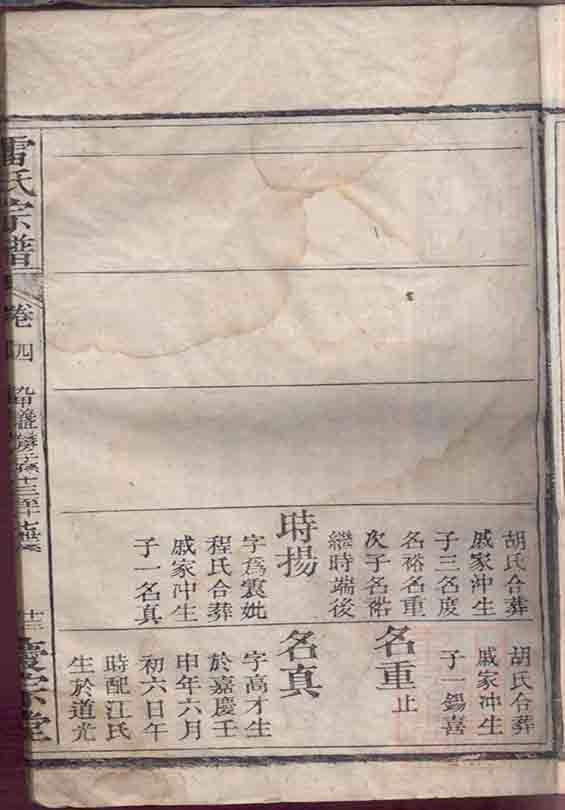 胡氏合葬
戚家冲生
子三名度
名裕名重
次子名裕
繼時端後
時揚
字爲裳妣
程氏合葬
戚家冲生
子一名真
胡氏合葬
戚家冲生
子一錫喜
名重止
名真
字高才生
於嘉慶壬
申年六月
初六日午
時配江氏
生於道光
雷氏宗譜
卷四
廿三
慶宗堂